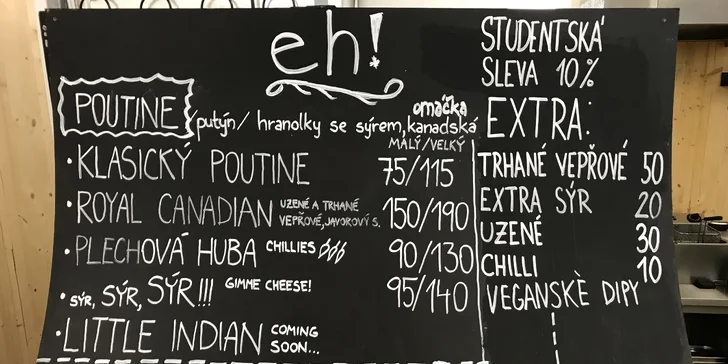 eh!
POUTINE
/putýn/ hranolky se sýrem, kanadská omáčka
MALÝ/VELKÝ
• KLASICKÝ POUTINE 75/115
• ROYAL CANADIAN UZENÉ A TRHANÉ VEPŘOVÉ, JAVOROVÝ S. 150/190
• PLECHOVÁ HUBA CHILLIES 90/130
• SÝR, SÝR, SÝR!!! GIMME CHEESE! 95/140
• LITTLE INDIAN COMING SOON...
STUDENTSKÁ
SLEVA 10%
EXTRA:
TRHANÉ VEPŘOVÉ 50
EXTRA SÝR 20
UZENÉ 30
CHILLI 10
VEGANSKÈ DIPY